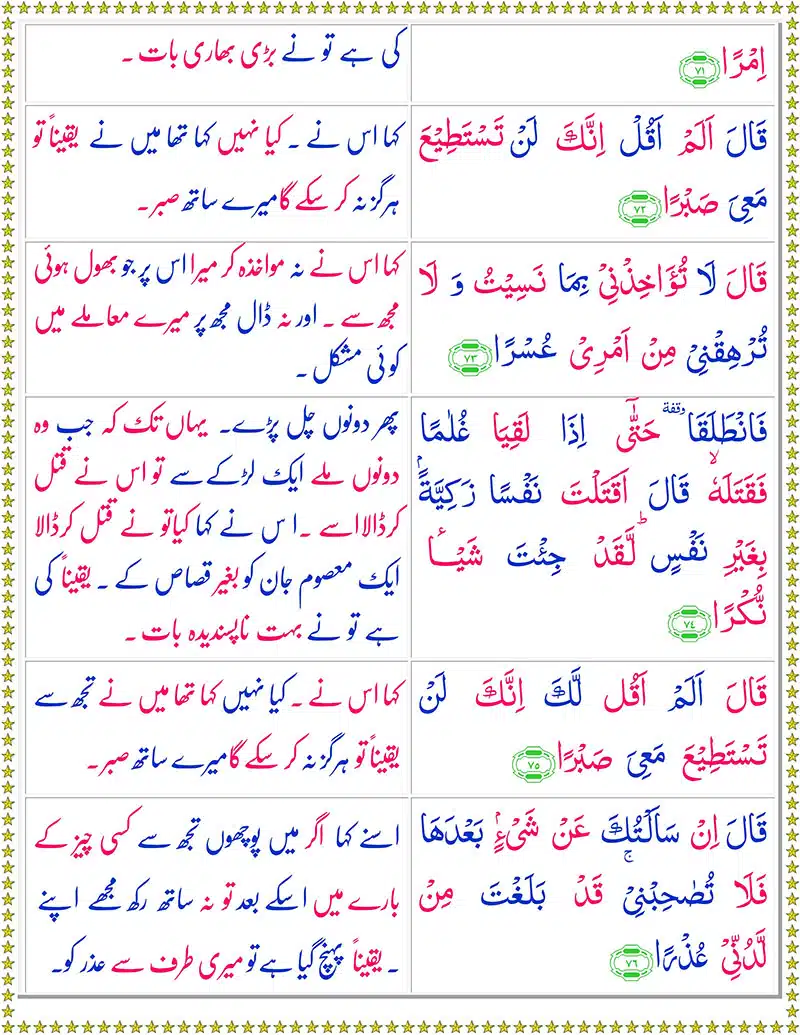 اِمْرًا ﴿۷۱﴾
کی ہے تو نے بڑی بھاری بات ۔
قَالَ اَلَمْ اَقُلْ اِنَّكَ لَنْ تَسْتَطِيْعَ
مَعِىَ صَبْرًا ﴿۷۲﴾
کہا اس نے ۔ کیا نہیں کہا تھا میں نے یقیناً تو
ہرگز نہ کر سکے گا میرے ساتھ صبر ۔
قَالَ لَا تُؤَاخِذْنِىْ بِمَا نَسِيْتُ وَ لَا
تُرْهِقْنِىْ مِنْ اَمْرِىْ عُسْرًا ﴿۷۳﴾
کہا اس نے نہ مواخذہ کر میرا اس پر جو بھول ہوئی
مجھ سے ۔ اور نہ ڈال مجھ پر میرے معاملے میں
کوئی مشکل ۔
فَانْطَلَقَا وقفة حَتّٰٓى اِذَا لَقِيَا غُلٰمًا
فَقَتَلَهٗ ۙ قَالَ اَقَتَلْتَ نَفْسًا زَكِيَّةً ۢ
بِغَيْرِ نَفْسٍ ؕ لَّقَدْ جِئْتَ شَيْــًٔـا
نُّكْرًا ﴿۷۴﴾
پھر دونوں چل پڑے۔ یہاں تک کہ جب وہ
دونوں ملے ایک لڑکے سے تو اس نے قتل
کر ڈالا اسے ۔ اس نے کہا کیا تو نے قتل کر ڈالا
ایک معصوم جان کو بغیر قصاص کے ۔ یقیناً کی
ہے تو نے بہت ناپسندیدہ بات ۔
قَالَ اَلَمْ اَقُل لَّكَ اِنَّكَ لَنْ
تَسْتَطِيْعَ مَعِىَ صَبْرًا ﴿۷۵﴾
کہا اس نے ۔ کیا نہیں کہا تھا میں نے تجھ سے
یقیناً تو ہرگز نہ کر سکے گا میرے ساتھ صبر ۔
قَالَ اِنْ سَاَلْتُكَ عَنْ شَىْءٍۢ بَعْدَهَا
فَلَا تُصٰحِبْنِىْ ۚ قَدْ بَلَغْتَ مِنْ
لَّدُنِّىْ عُذْرًا ﴿۷۶﴾
اسنے کہا اگر میں پوچھوں تجھ سے کسی چیز کے
بارے میں اسکے بعد تو نہ ساتھ رکھ مجھے اپنے
۔ یقیناً پہنچ گیا ہے تو میری طرف سے عذر کو۔